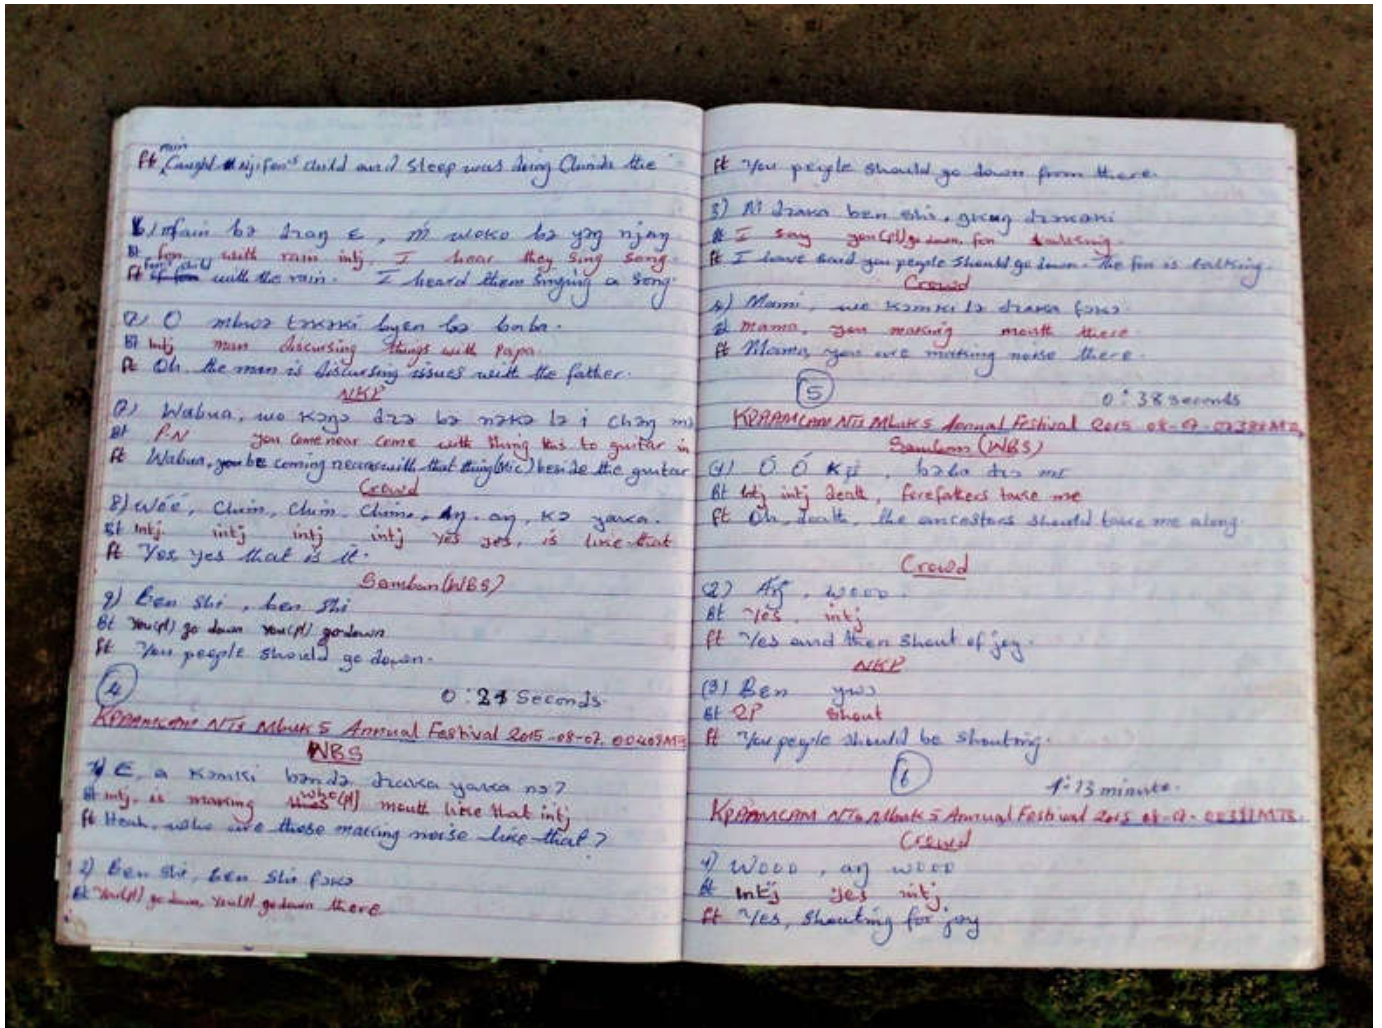 ft Caught Njifon's child and sleep was doing Chunda the
rain
6) mfain bə dzaŋ ɛ, ḿ woko bə yəŋ njaŋ
Bt fon with rain intj, I hear they sing song
ft Fon's child with the rain. I heard them singing a song
7) O mbwə təkəki byen bə baba.
Bt Intj man discursing things with Papa.
ft Oh, the man is discursing issues with the father.
NKP
7) Wabua, wo kəŋə dzə bə nəkə lə i chəŋ mə
Bt P.N you come near come with thing this to guitar in
ft Wabua, you be coming near with that thing (Mic) beside the guitar
Crowd
8) Wóó, Chim, Chim, Chim, aŋ, aŋ, kə yaka.
Bt Intj. intj intj intj yes yes, is like-that
ft Yes, yes that is it.
Samban (WBS)
9) Ben shi, ben shi
Bt You(pl) go down You(pl) go down
ft You people should go down.
4
0:21 Seconds.
KPAAMCAM NTs Mbuk 5 Annual Festival 2015-08-07. 00409MTS
WBS
1) E, a kəmki bəndə dzaka yaka nə?
Bt intj. is making who(pl) mouth like that intj
ft Heah, who are those making noise like-that?
2) Ben shi, ben shi fəkə
Bt You(pl) go down, You(pl) go down there
ft You people should go down from there.
3) M dzaka ben shi, gwaŋ dzəkəki
Bt I say you(pl) go down, fon talking
ft I have said you people should go down. The fon is talking.
Crowd
4) Mami, wo kəmki lə dzaka fəkə
Bt mama, you making mouth there
ft Mama, you are making noise there.
5
0:38 seconds
KPAAMCAM NTs Mbuk 5 Annual Festival 2015 08-07-
Samban (WBS)
(1) Ó Ó Kpɨ, bəba dzə mɛ
Bt Intj intj death, forefathers take me
ft Oh, death, the ancestors should take me along.
Crowd
(2) Aŋ, wooo.
Bt Yes, intj
ft Yes and then shout of joy.
NKP
(3) Ben ywə
Bt 2P shout
ft You people should be shouting.
6
1:13 minute.
KPAAMCAM NTs Mbuk 5 Annual Festival 2015 08-07-
Crowd
1) Wooo, aŋ wooo
Bt Intj yes intj
ft Yes, shouting for joy